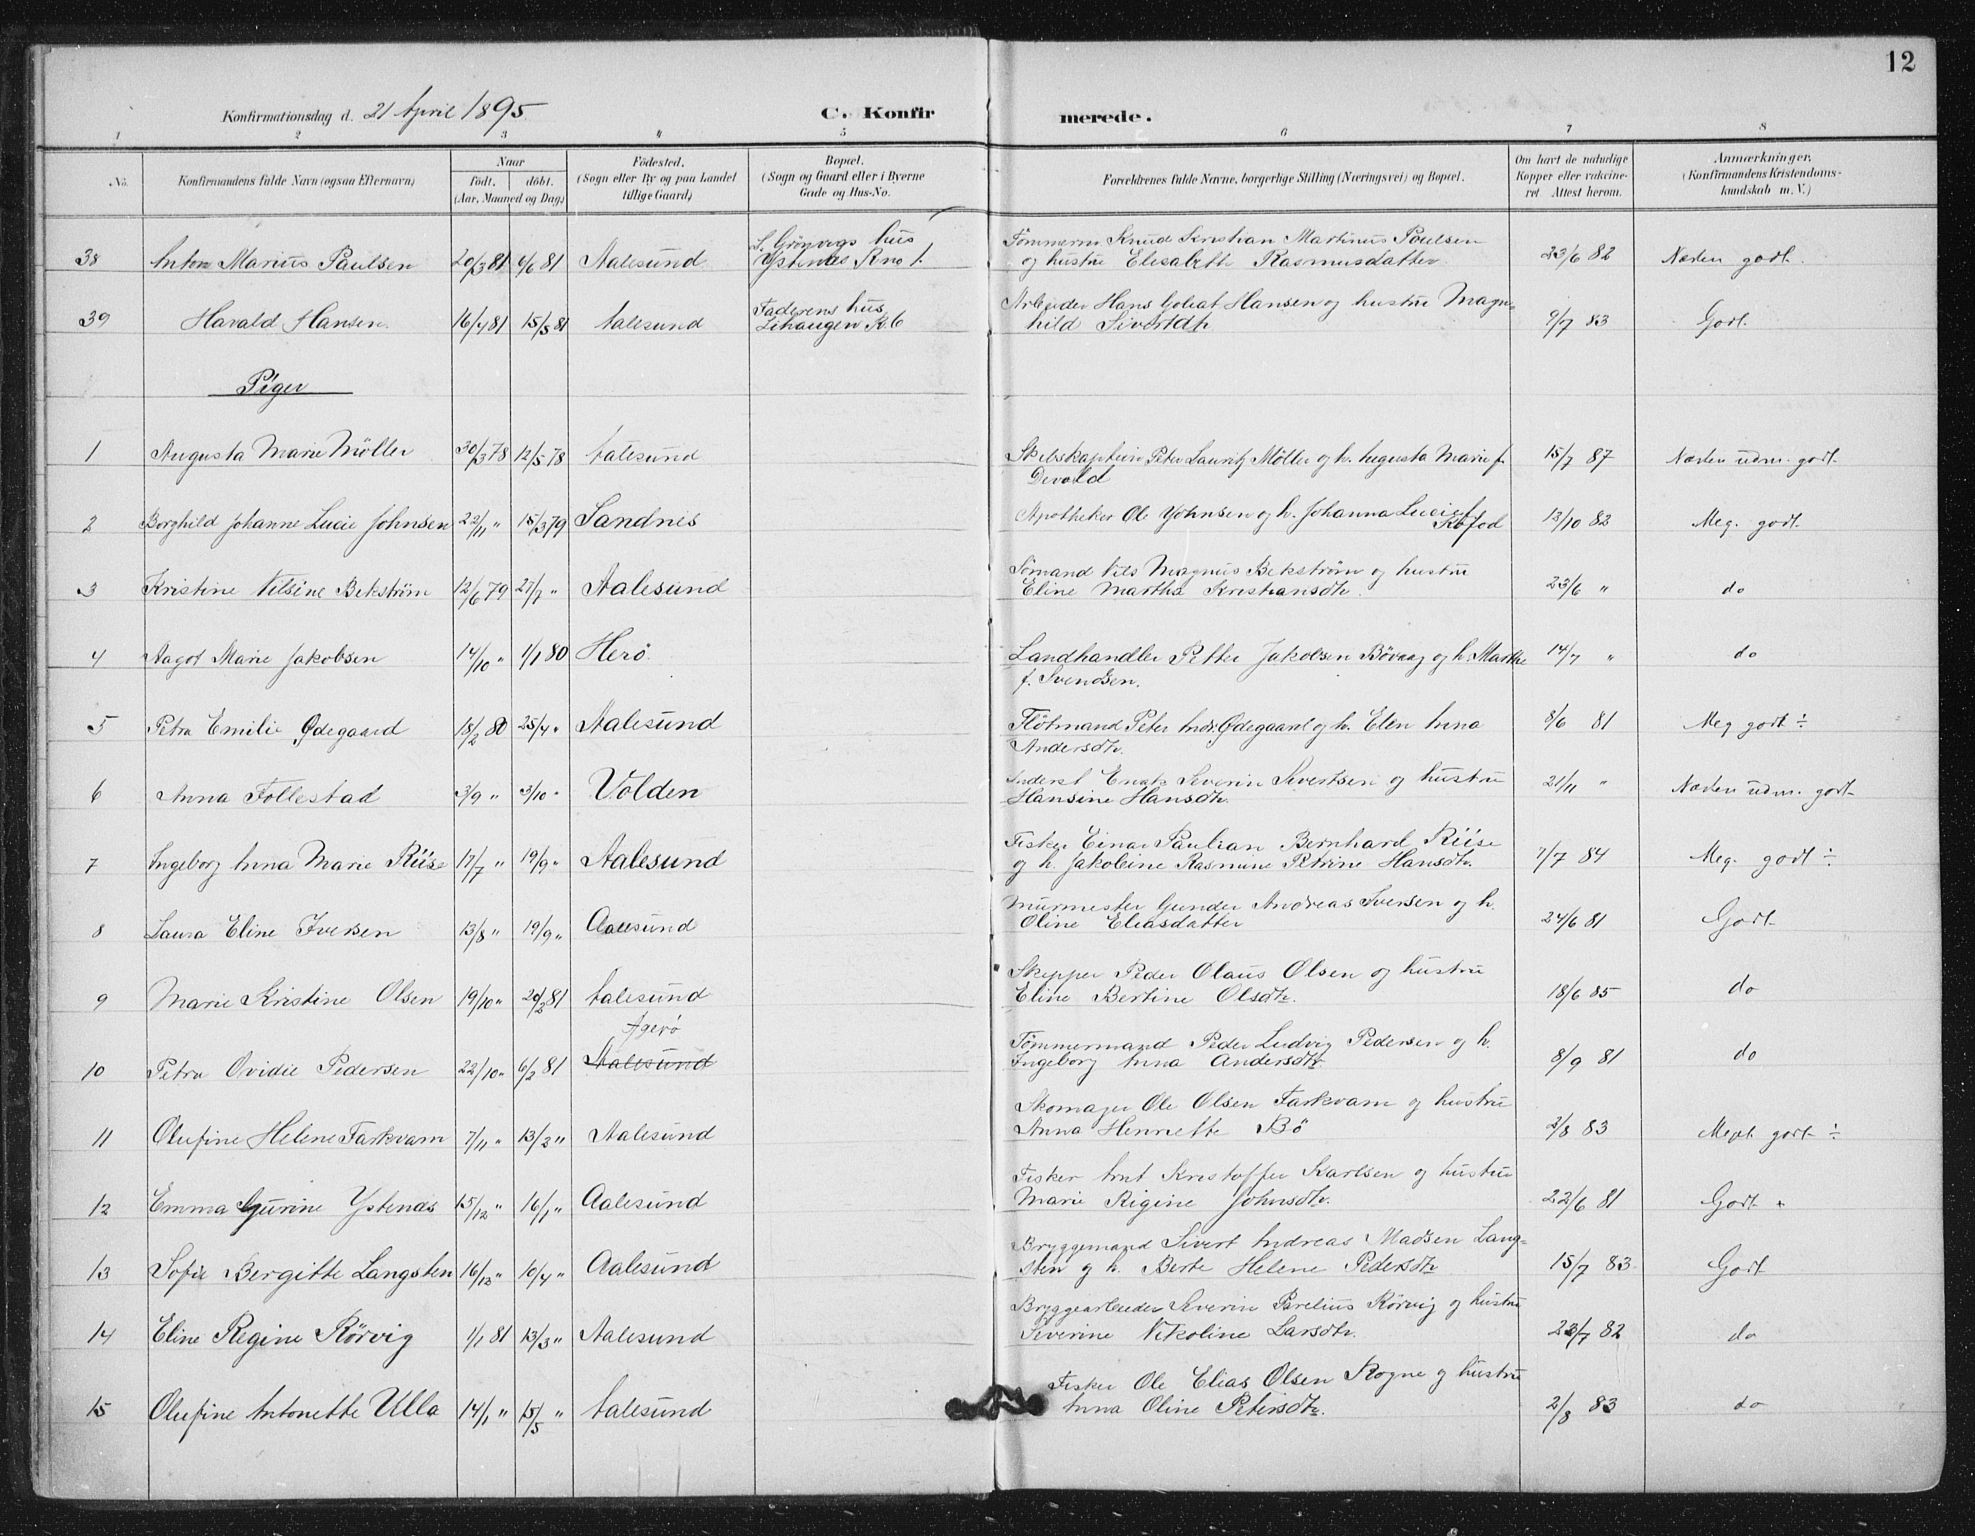 12
Konfirmationsdag d. 21 April 1895. C. Konfirmerede.
1 2 3 " 5 6 7 8
No. Konfirmandens fulde Navn (ogsaa Efternavn) Naar födt. döbt. (Aar, Maaned og Dag) Födested. (Sogn eller By og paa Landet tillige Gaard) Bopæl. (Sogn og Gaard eller i Byerne Gade og Hus-No. Forældrenes fulde Navne, borgerlige Stilling (Næringsvei) og Bopæl. Om havt de naturlige Kopper eller vakcineret Attest herom. Anmærkninger. (Konfirmandens Kristendomskundskab m. V.)
38 Anton Marius Paulsen 20/3 81 6/6 81 Aalesund S. Grönvigs hus Ystenæs R no 1. Tömmerm. Knud Kristian Martinus Paulsen og hustru Elisabeth Rasmusdatter. 23/6 82 Næsten godt.
39 Harald Hansen 16/4 81 15/5 81 Aalesund Faderens hus Lihaugen R. 6 Arbeider Hans Goliat Hansen og hustru Magnhild Sivertdtr 9/7 83 Godt.
Piger
1 Augusta Marie Möller 30/3 78 12/5 78 Aalesund Skibskaptein Peter Lauritz Möller og h. Augusta Marie f. Devold 15/7 87 Næsten udm. godt.
2 Borghild Johanne Lucie Johnsen 22/11 " 15/3 79 Sandnes Apotheker Ole Johnsen og h. Johanna Lucie f. Kofod 13/10 82 Meg. godt.
3 Kristine Nilsine Bekström 12/6 79 27/7 " Aalesund Sömand Nils Magnus Bekström og hustru Eline Martha Kristiansdtr. 23/6 " do
4 Aagot Marie Jakobsen 14/10 " 1/1 80 Herö Landhandler Petter Jakobsen Bövaag og h. Marthe f. Svendsen. 14/7 " do
5 Petra Emilie Ødegaard 18/2 80 25/4 " Aalesund Flötmand Peter Andr. Ødegaard og h. Elen Anna Andersdtr. 8/6 81 Meg godt ÷
6 Anna Follestad 3/9 " 3/10 " Volden Severin Sivertsen og hustru Hansine Hansdtr. 21/11 " Næsten udm. godt
7 Ingeborg Anna Marie Riise 17/7 " 19/9 " Aalesund Fisker Einar Paulian Bernhard Riise og h. Jakobine Rasmine Petrine Hansdtr. 7/7 84 Meg. godt ÷
8 Laura Eline Iversen 13/8 " 19/9 " Aalesund Murmester Gunder Andreas Iversen og h. Oline Eliasdatter 24/6 81 Godt
9 Marie Kristine Olsen 19/10 " 20/2 81 Aalesund Skipper Peder Olaus Olsen og hustru Eline Bertine Olsdtr. 18/6 85 do
10 Petra Ovidie Pedersen 22/10 " 6/2 81 Agerö Aalesund Tömmermand Peder Ludvig Pedersen og h. Ingeborg Anna Andersdtr 8/9 81 do
11 Olufine Helene Farkvam 7/11 " 13/2 " Aalesund Skomager Ole Olsen Farkvam og hustru Anna Henriette Bö 2/8 83 Meget godt ÷
12 Emma Gurine Ystenæs 15/12 " 16/1 " Aalesund Fisker Knut Kristoffer Karlsen og hustru Marie Rigine Johnsdtr. 22/6 81 Godt +
13 Sofie Bergitte Langsten 16/12 " 10/4 " Aalesund Bryggemand Sivert Andreas Madsen Langsten og h. Berte Helene Pedersdtr 15/7 83 Godt
14 Eline Regine Rörvig 1/1 81 13/3 " Aalesund Bryggearbeider Severin Parelius Rörvig og hustru Siverine Nikoline Larsdtr. 23/7 82 do
15 Olufine Antonette Ulla 14/1 " 15/5 " Aalesund Fisker Ole Elias Olsen Rogne og hustru Anna Oline Petersdtr. 2/8 83 do